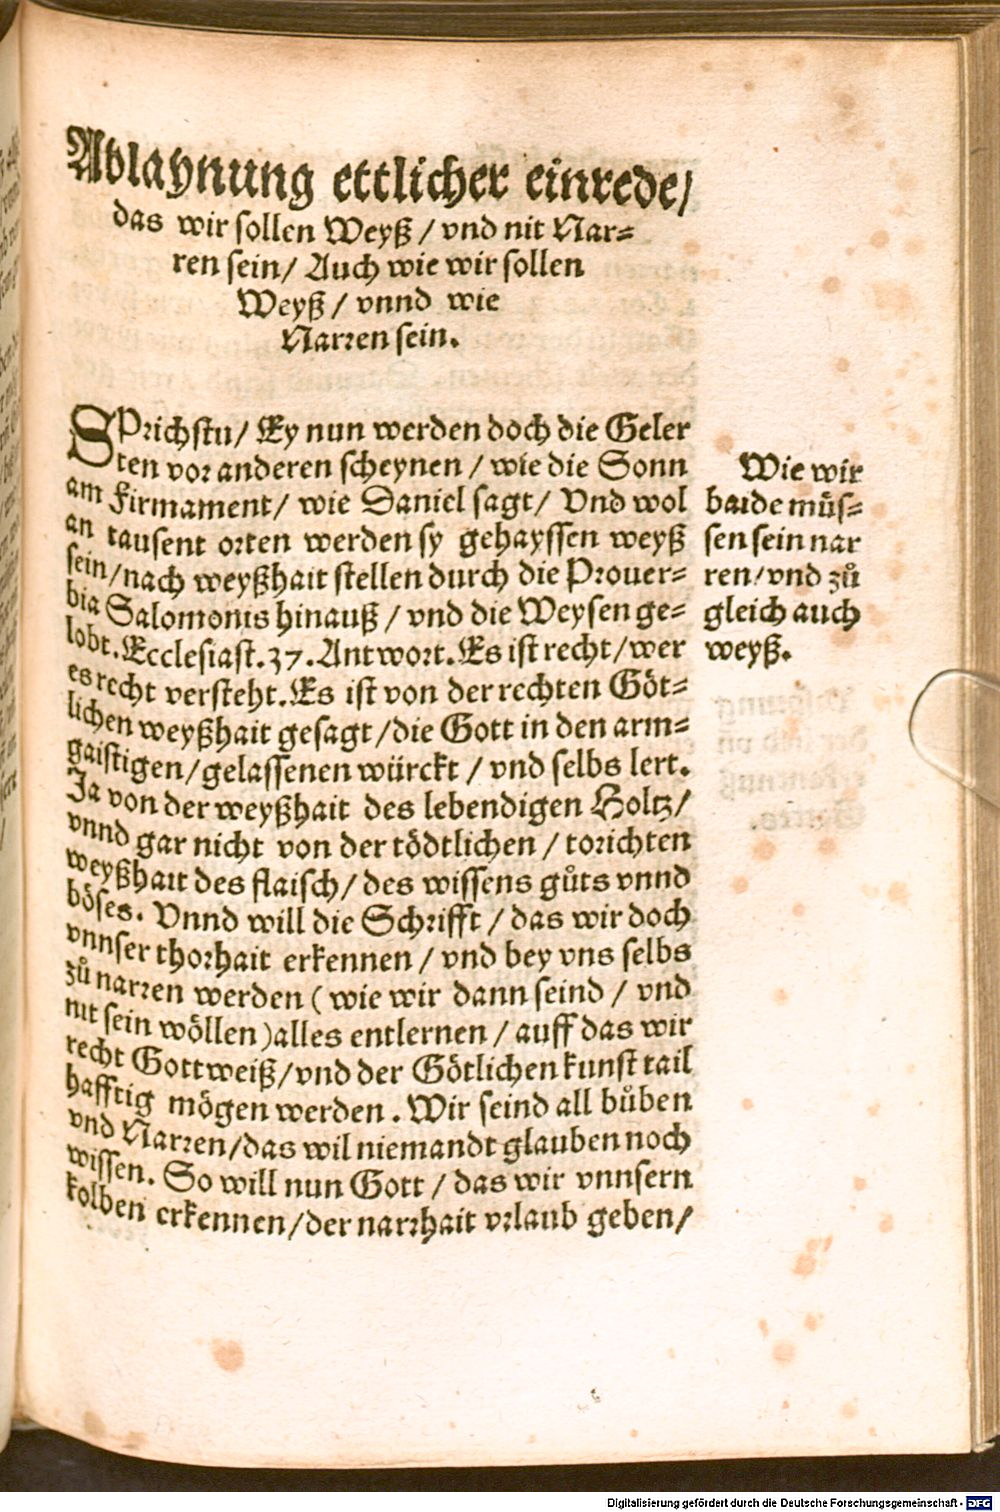 Ablaynung ettlicher einrede/
das wir sollen Weyß / vnd nit Nar⸗
ren sein/ Auch wie wir sollen
Weyß / vnnd wie
Narren sein.
SPrichstu/ Ey nun werden doch die Geler
ten vor anderen scheynen / wie die Sonn
am Firmament/ wie Daniel sagt/ Vnd wol
an tausent orten werden sy gehayssen weyß
sein/nach weyßhait stellen durch die Prouer⸗
bia Salomonis hinauß / vnd die Weysen ge⸗
lobt. Ecclesiast. 37. Antwort. Es ist recht/ wer
es recht versteht. Es ist von der rechten Göt⸗
lichen weyßhait gesagt /die Gott in den arm⸗
gaistigen/gelassenen würckt / vnd selbs lert.
Ja von der weyßhait des lebendigen Holtz/
vnnd gar nicht von der tödtlichen / torichten
weyßhait des flaisch/ des wissens gůts vnnd
böses. Vnnd will die Schrifft / das wir doch
vnnser thorhait erkennen / vnd bey vns selbs
zů narren werden ( wie wir dann seind / vnd
nit sein wöllen )alles entlernen / auff das wir
recht Gottweiß/vnd der Götlichen kunst tail
hafftig mögen werden . Wir seind all bůben
vnd Narren/das wil niemandt glauben noch
wissen. So will nun Gott / das wir vnnsern
kolben erkennen/der narrhait vrlaub geben/
Wie wir
baide müs⸗
sen sein nar
ren/vnd zů
gleich auch
weyß.
Digitalisierung gefördert durch die Deutsche Forschungsgemeinschaft - DFG